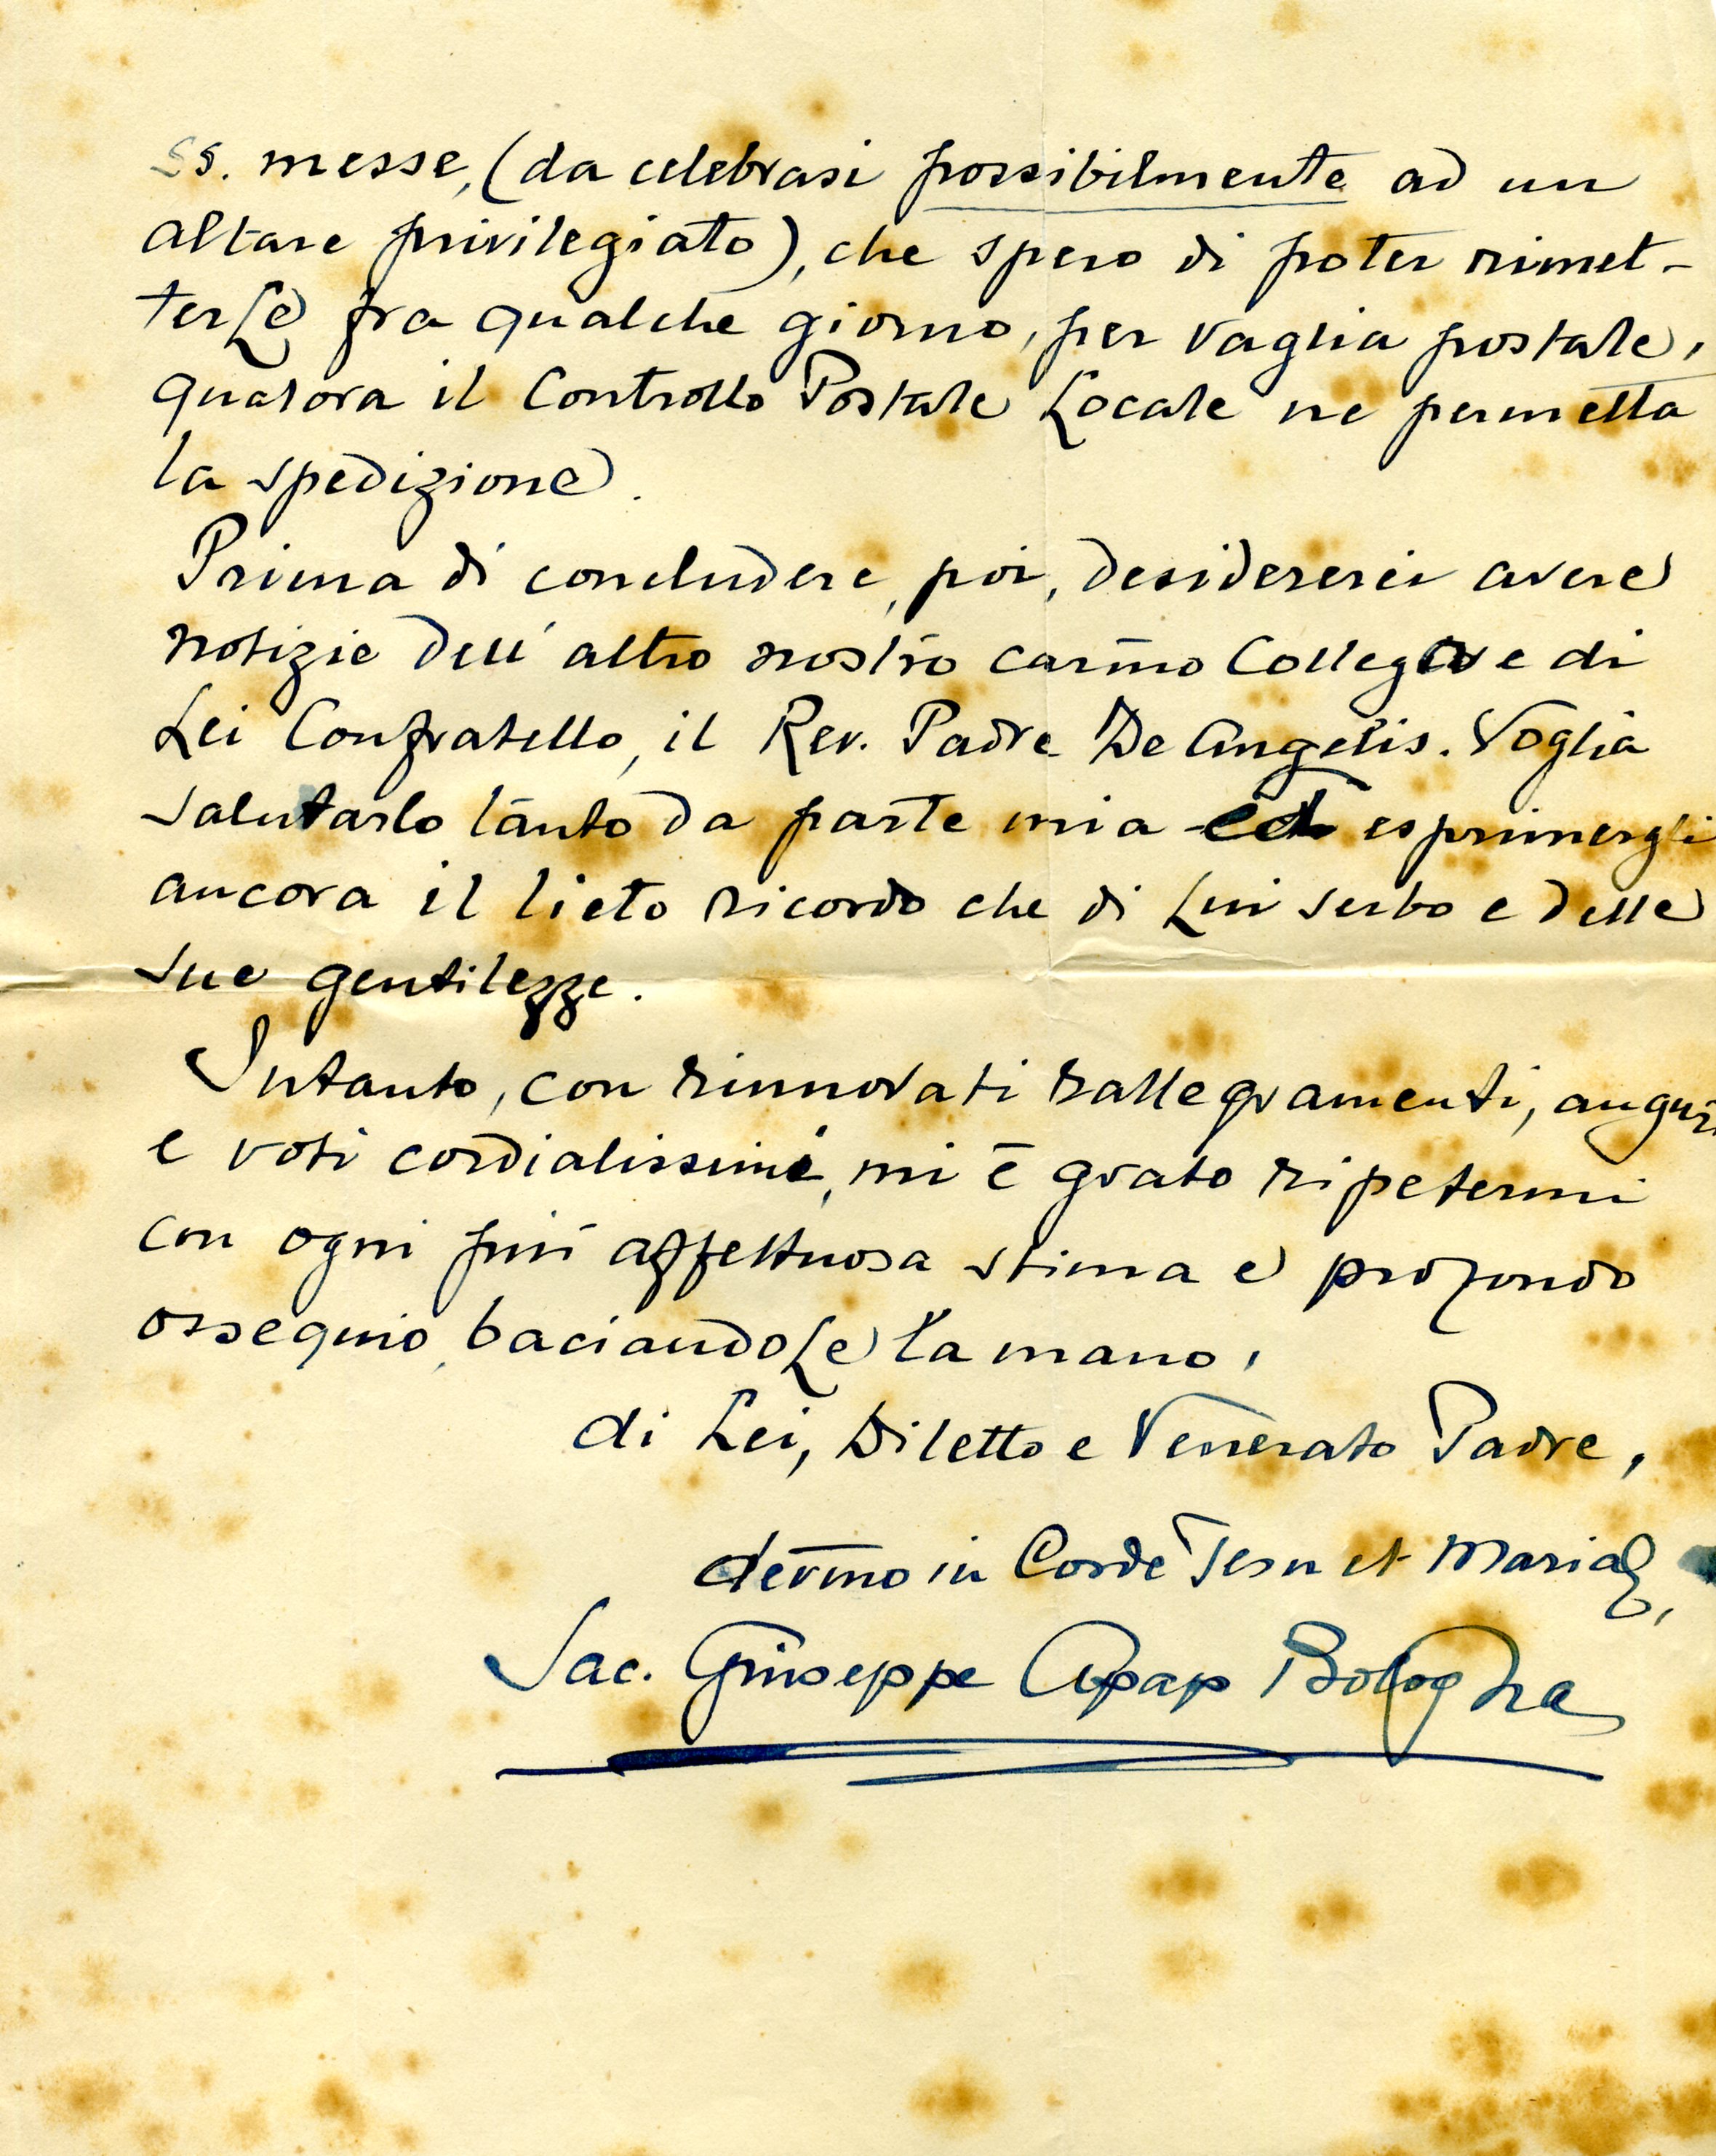 SS. messe, (da celebrasi possibilmente ad un
altare privilegiato), che spero di poter rimet-
terLe fra qualche giorno, per vaglia postale,
qualora il Controllo Postale Locale ne permetta
la spedizione.
Prima di concludere, poi, desidererei avere
notizie dell'altro nostro carmo Collega e di
Lei Confratello, il Rev. Padre De Angelis. Voglia
salutarlo tanto da parte mia ed esprimergli
ancora il lieto ricordo che di Lui serbo e delle
sue gentilezze.
Intanto, con rinnovati rallegramenti, auguri
e voti cordialissimi, mi è grato ripetermi
con ogni più affettuosa stima e profondo
ossequio, baciandoLe la mano,
di Lei, Diletto e Venerato Padre,
devmo in Corde Jesu et Mariae,
Sac. Giuseppe Apap Bologna